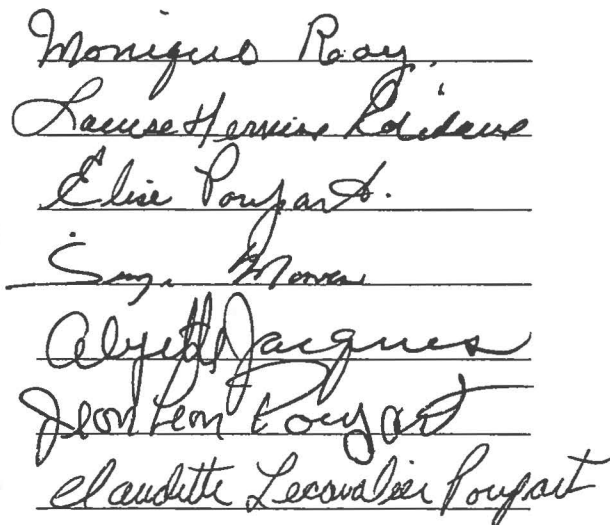 Monique Roy
Louise Hermine Robidoux
Élise Poupart.
Suzy
Jacques
Jean Léon Poupart
Claudette Lecavalier Poupart